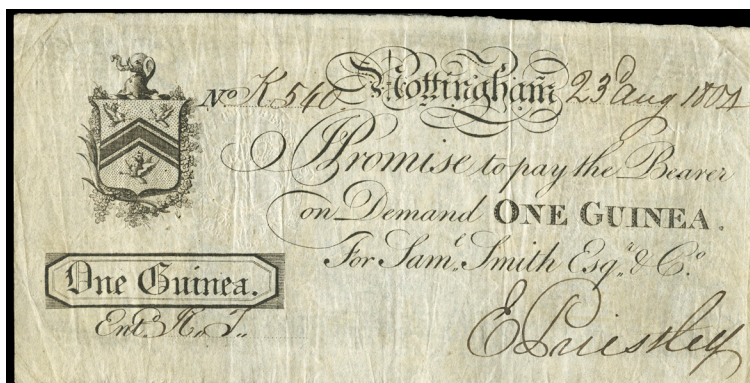 No K 540 Nottingham 23d aug 1804
I Promise to pay the Bearer
on Demand ONE GUINEA.
For Saml. Smith Esqr. & Co.
One Guinea.
Entd.
E Priestley